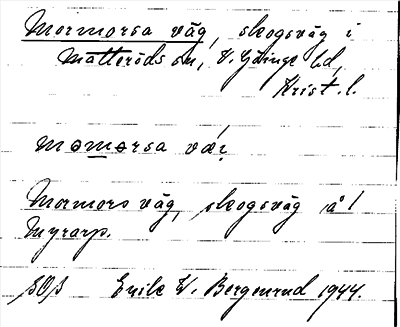 Mormorsa väg, skogsväg i
Matteröds sn, V. Göinge hd,
Krist. l.
Mormors väg, skogsväg å
Myrarp.
SOS Emile W. Bergenrud 1944.